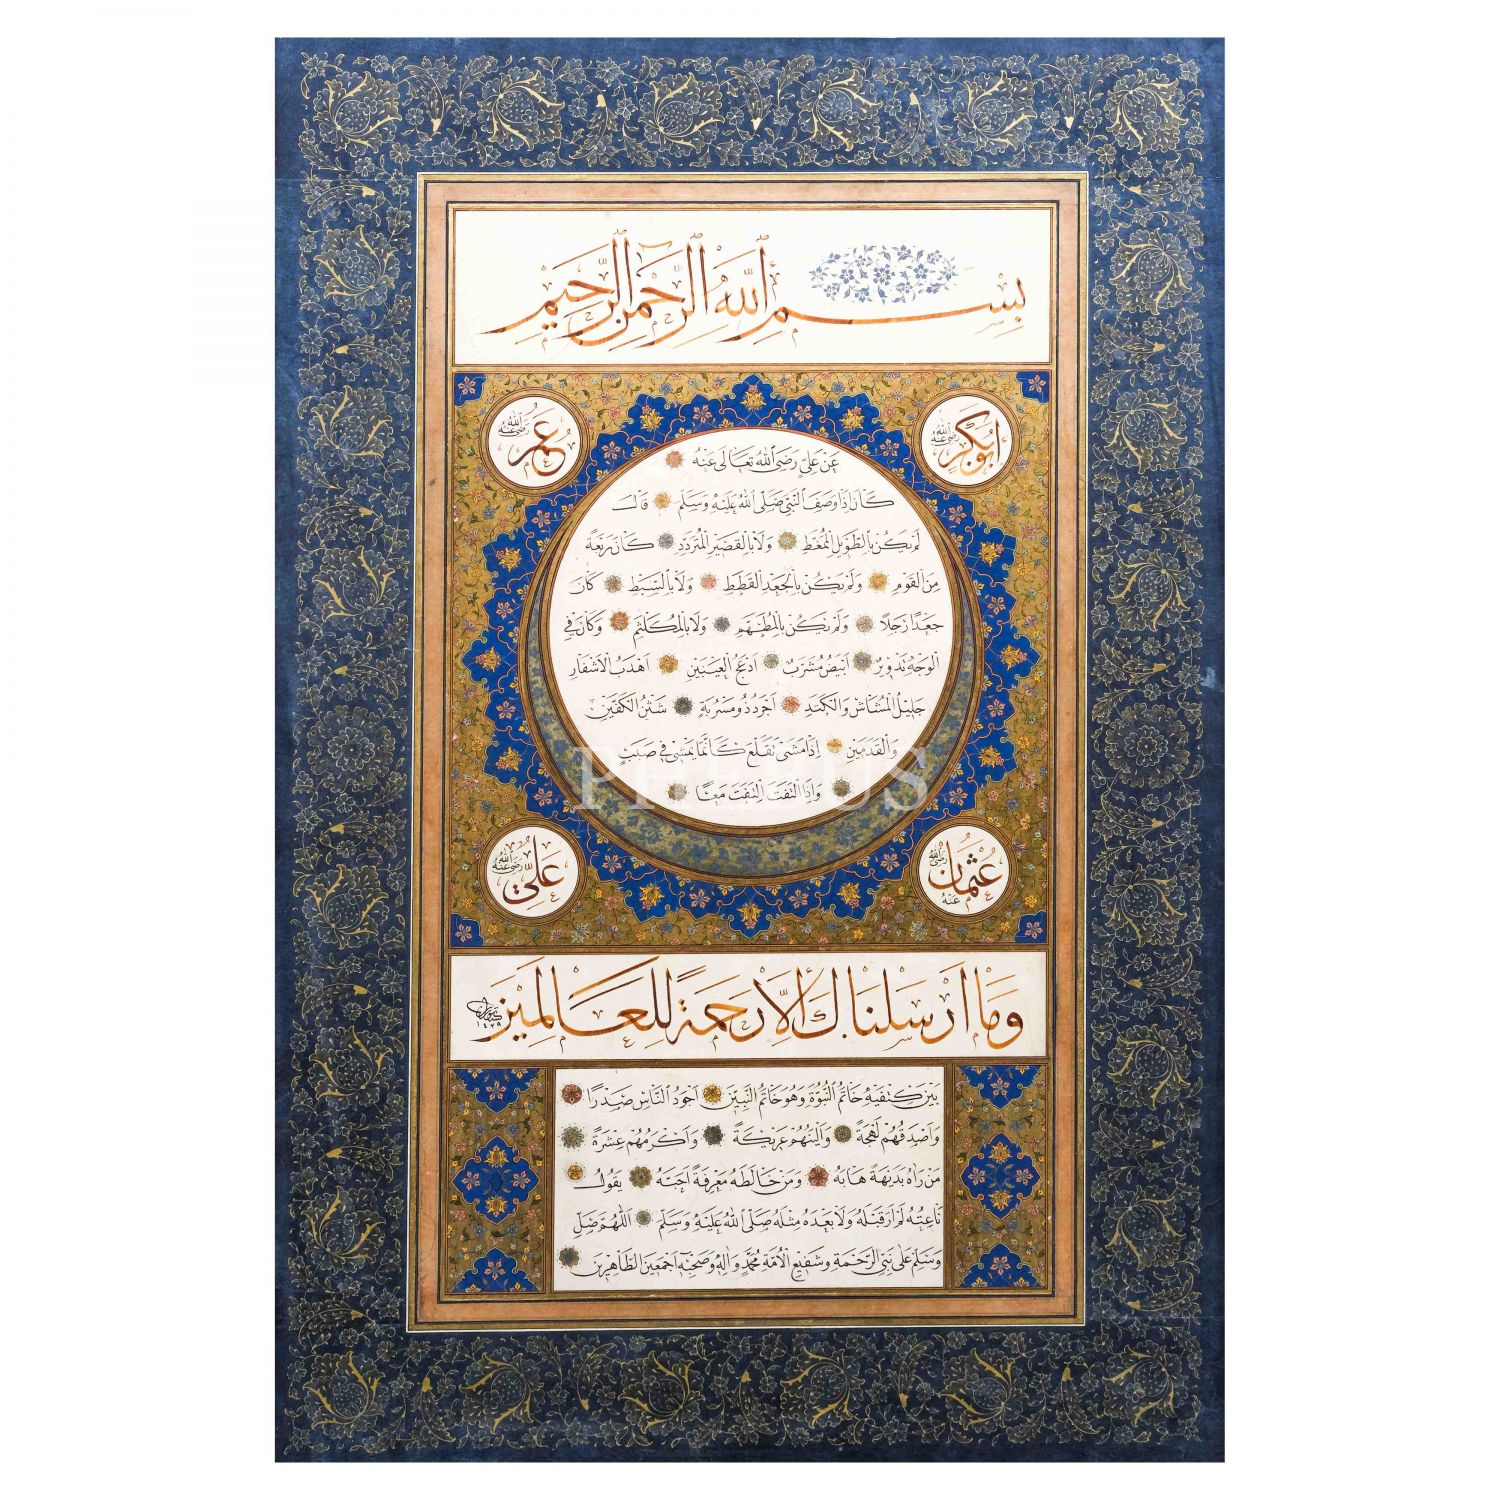 بِسْمِ ٱللهِ ٱلرَّحْمٰنِ ٱلرَّحِيمِ
أبوبكر رضى الله عنه
عمر رضى الله عنه
عن على رضى الله تعالى عنه
كان اذا وصف النبى صلى الله عليه وسلم قال
لم يكن بالطويل الممغط ولا بالقصير المتردد كان ربعة
من القوم ولم يكن بالجعد القطط ولا بالسبط كان
جعدا رجلا ولم يكن بالمطهم ولا بالمكلثم وكان فى
الوجه تدوير ابيض مشرب ادعج العينين اهدب الاشفار
جليل المشاش والكتد اجرد ذو مسربة شثن الكفين
والقدمين اذا مشى تقلع كانما يمشى فى صبب
واذا التفت التفت معا
PHEBUS
عثمان رضى الله عنه
على رضى الله عنه
وما ارسلناك الا رحمة للعالمين
١٤٢٩
بين كتفيه خاتم النبوة وهو خاتم النبيين اجود الناس صدرا
واصدقهم لهجة والينهم عريكة واكرمهم عشرة
من راه بديهة هابه ومن خالطه معرفة احبه يقول
ناعته لم ار قبله ولا بعده مثله صلى الله عليه وسلم اللهم صل
وسلم على نبى الرحمة وشفيع الامة محمد واله وصحبه اجمعين الطاهرين